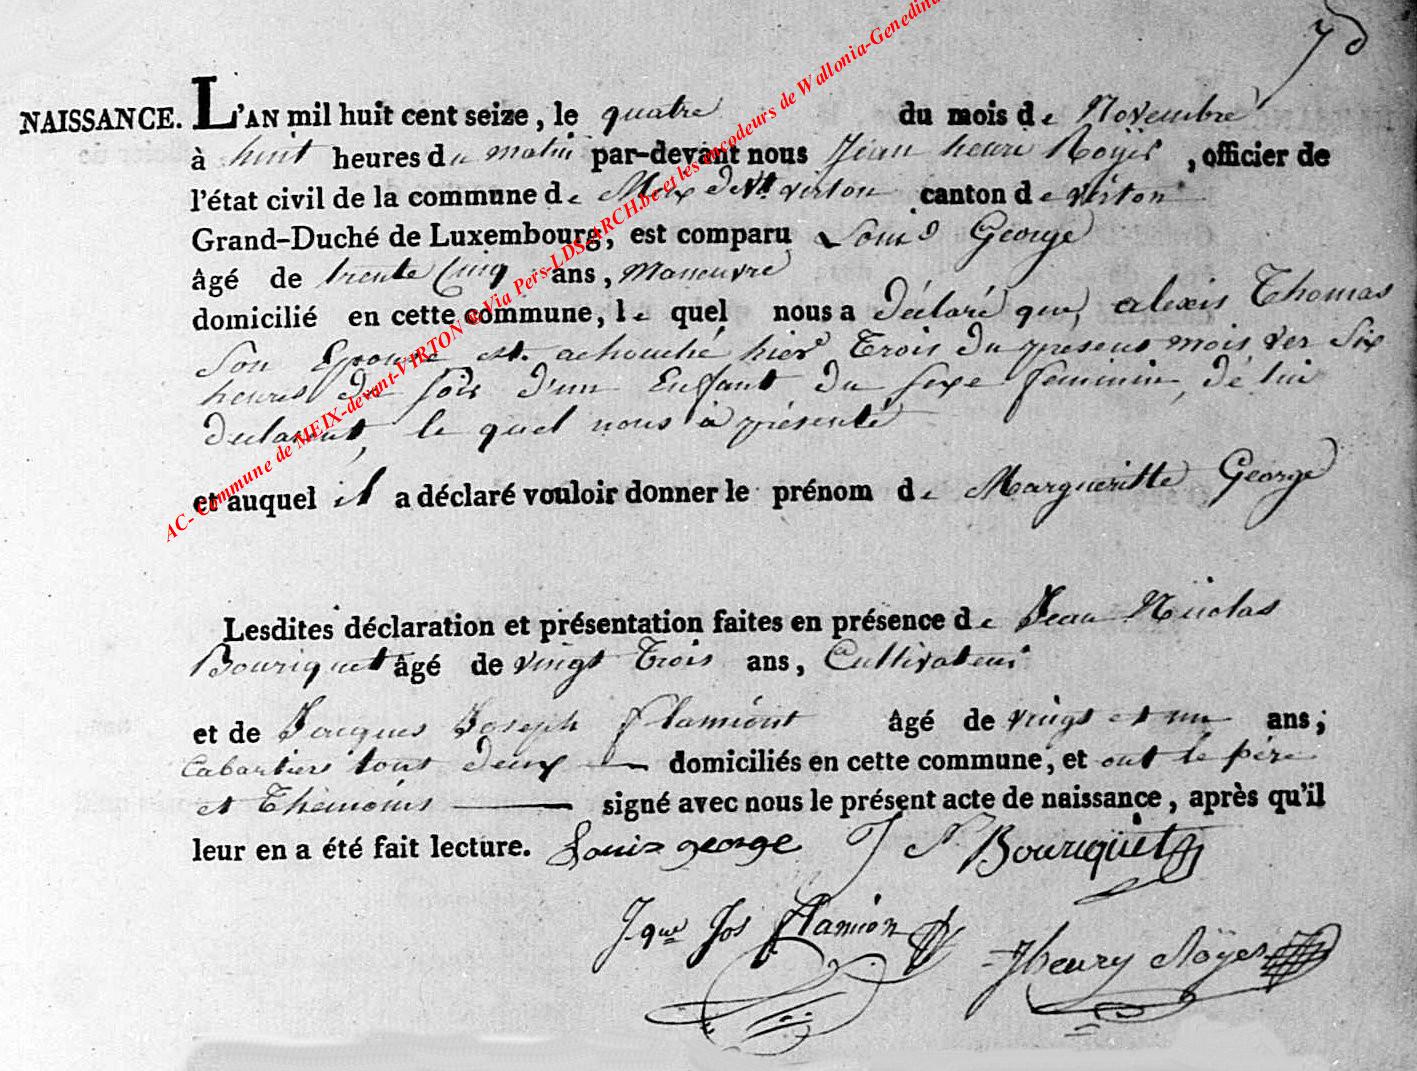 70
NAISSANCE. L'AN mil huit cent seize, le quatre du mois de Novembre
à huit heures du matin par-devant nous Jean henri Noÿés, officier de
l'état civil de la commune de Meix devt virton canton de virton
Grand-Duché de Luxembourg, est comparu Louis George
âgé de trente Cinq ans, Maneuvre
domicilié en cette commune, le quel nous a déclaré que, alexis Thomas
Son Epouse est achouché hier Trois du present mois ver Six
heures du Soir d'un Enfant du Sexe feminin, dé lui
declarant, le quel nous à présenté
et auquel il a déclaré vouloir donner le prénom de Margueritte George
Lesdites déclaration et présentation faites en présence de Jean Nicolas
Bouriquet âgé de vingt Trois ans, Cultivateur
et de Jacques Joseph flamiont âgé de vingt et un ans;
Cabartiers tout deux domiciliés en cette commune, et ont le pére
et Thémoins signé avec nous le présent acte de naissance, après qu'il
leur en a été fait lecture. Louis george J N. Bouriquet
Jque Jos flamion Jhenry Noÿes
AC- Commune de MEIX-devant-VIRTON © Via Pers-LDS-ARCH.be et les encodeurs de Wallonia-Genedina